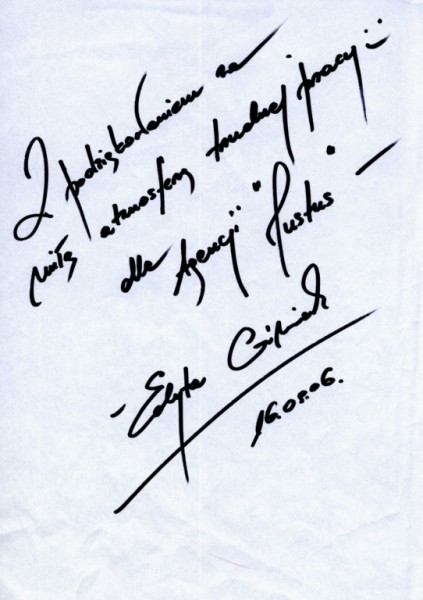 Z podziękowaniem za
miłą atmosferę trudnej pracy :)
dla Agencji "Justus" —
- Edyta
16.08.06.